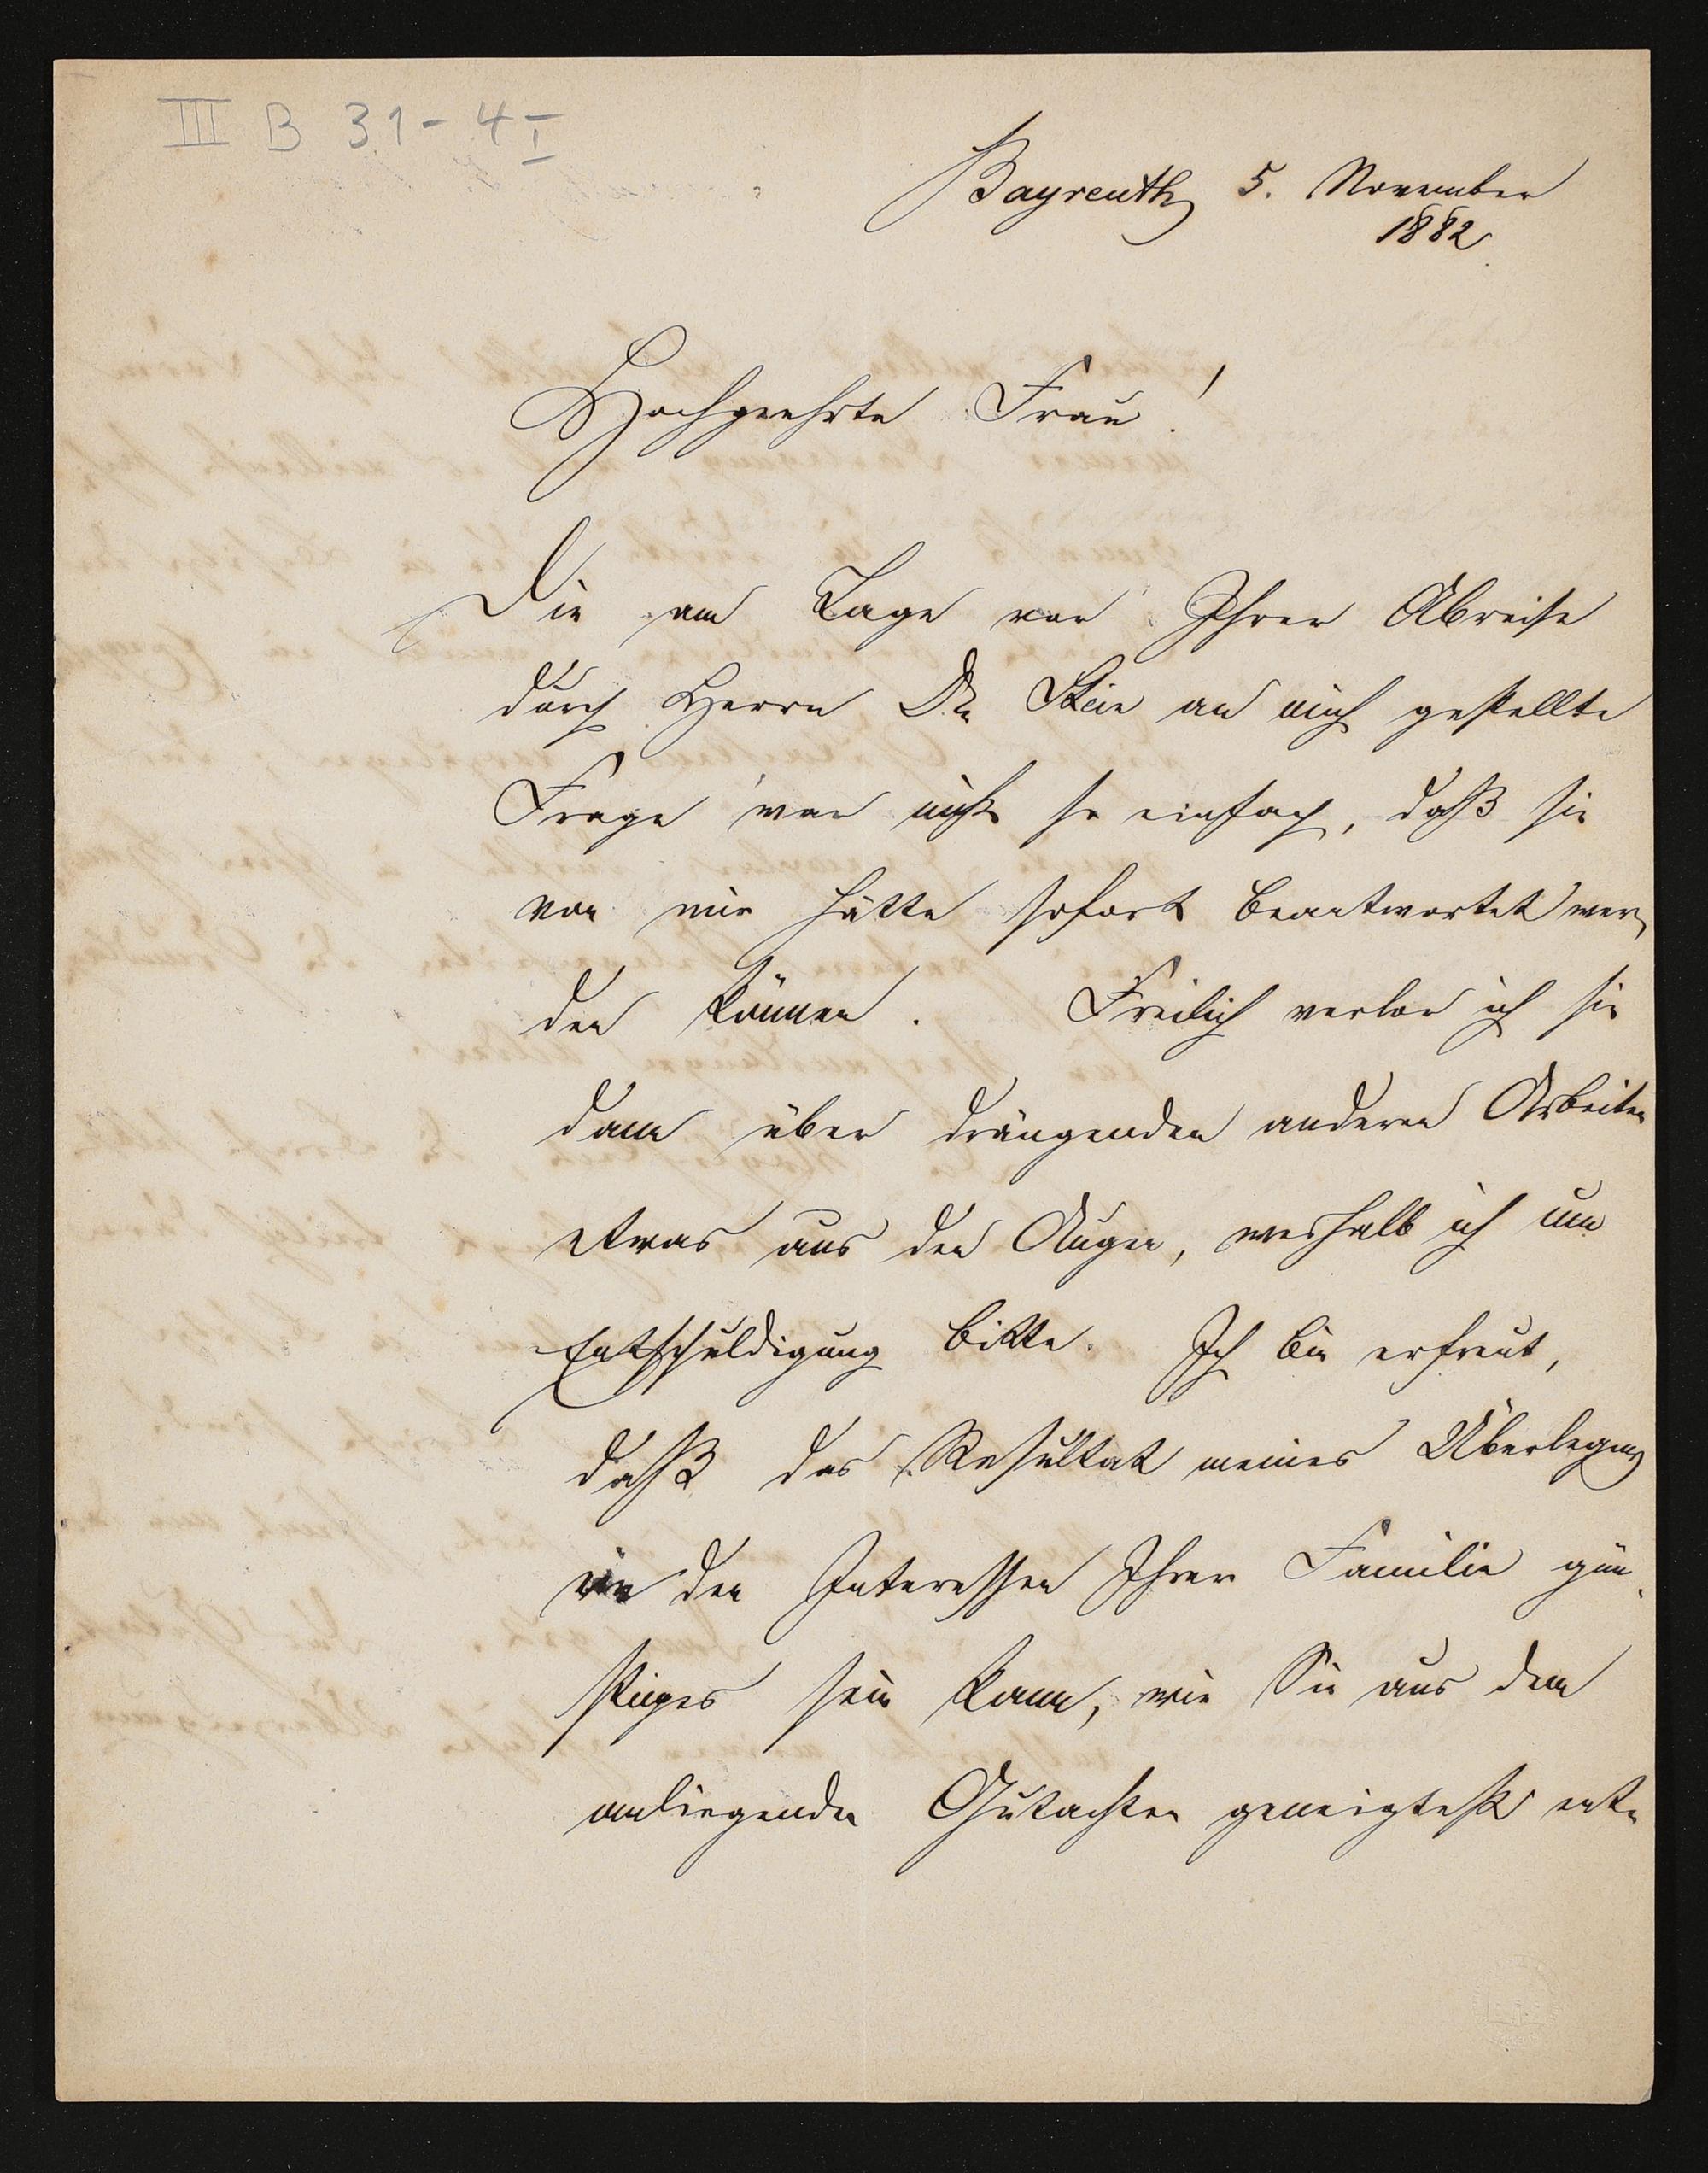 III B 31-4 I
Bayreuth 5. November
1882
Hochgeehrte Frau!
Die am Tage vor Ihrer Abreise
durch Herrn Dr Stein an mich gestellte
Frage war nicht so einfach, daß sie
von mir hätte sofort beantwortet wer-
den können. Freilich verlor ich sie
dann über drängenden anderen Arbeiten
etwas aus den Augen, weshalb ich um
Entschuldigung bitte. Ich bin erfreut,
daß das Resultat meiner Überlegung
in den Interessen Ihrer Familie gün-
stiges sein kann, wie Sie aus dem
anliegenden Gutachten geneigtest ent-